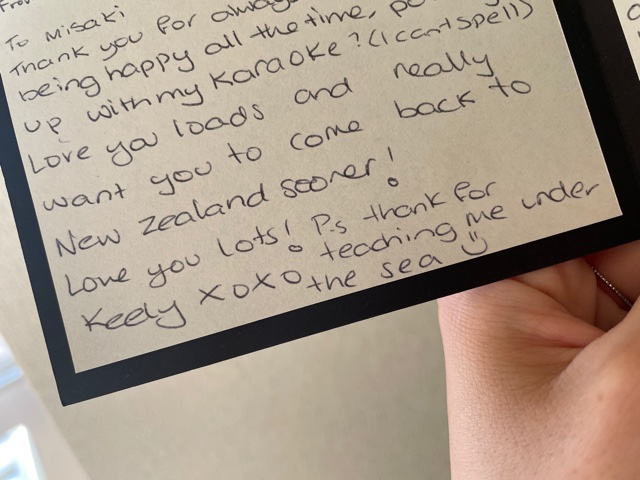 To Misaki
Thank you for always
being happy all the time,
up with my karaoke? (I cant spell)
Love you loads and really
want you to come back to
New zealand sooner!
Love you lots! P.s thank for
teaching me under
Keely xoxo the sea